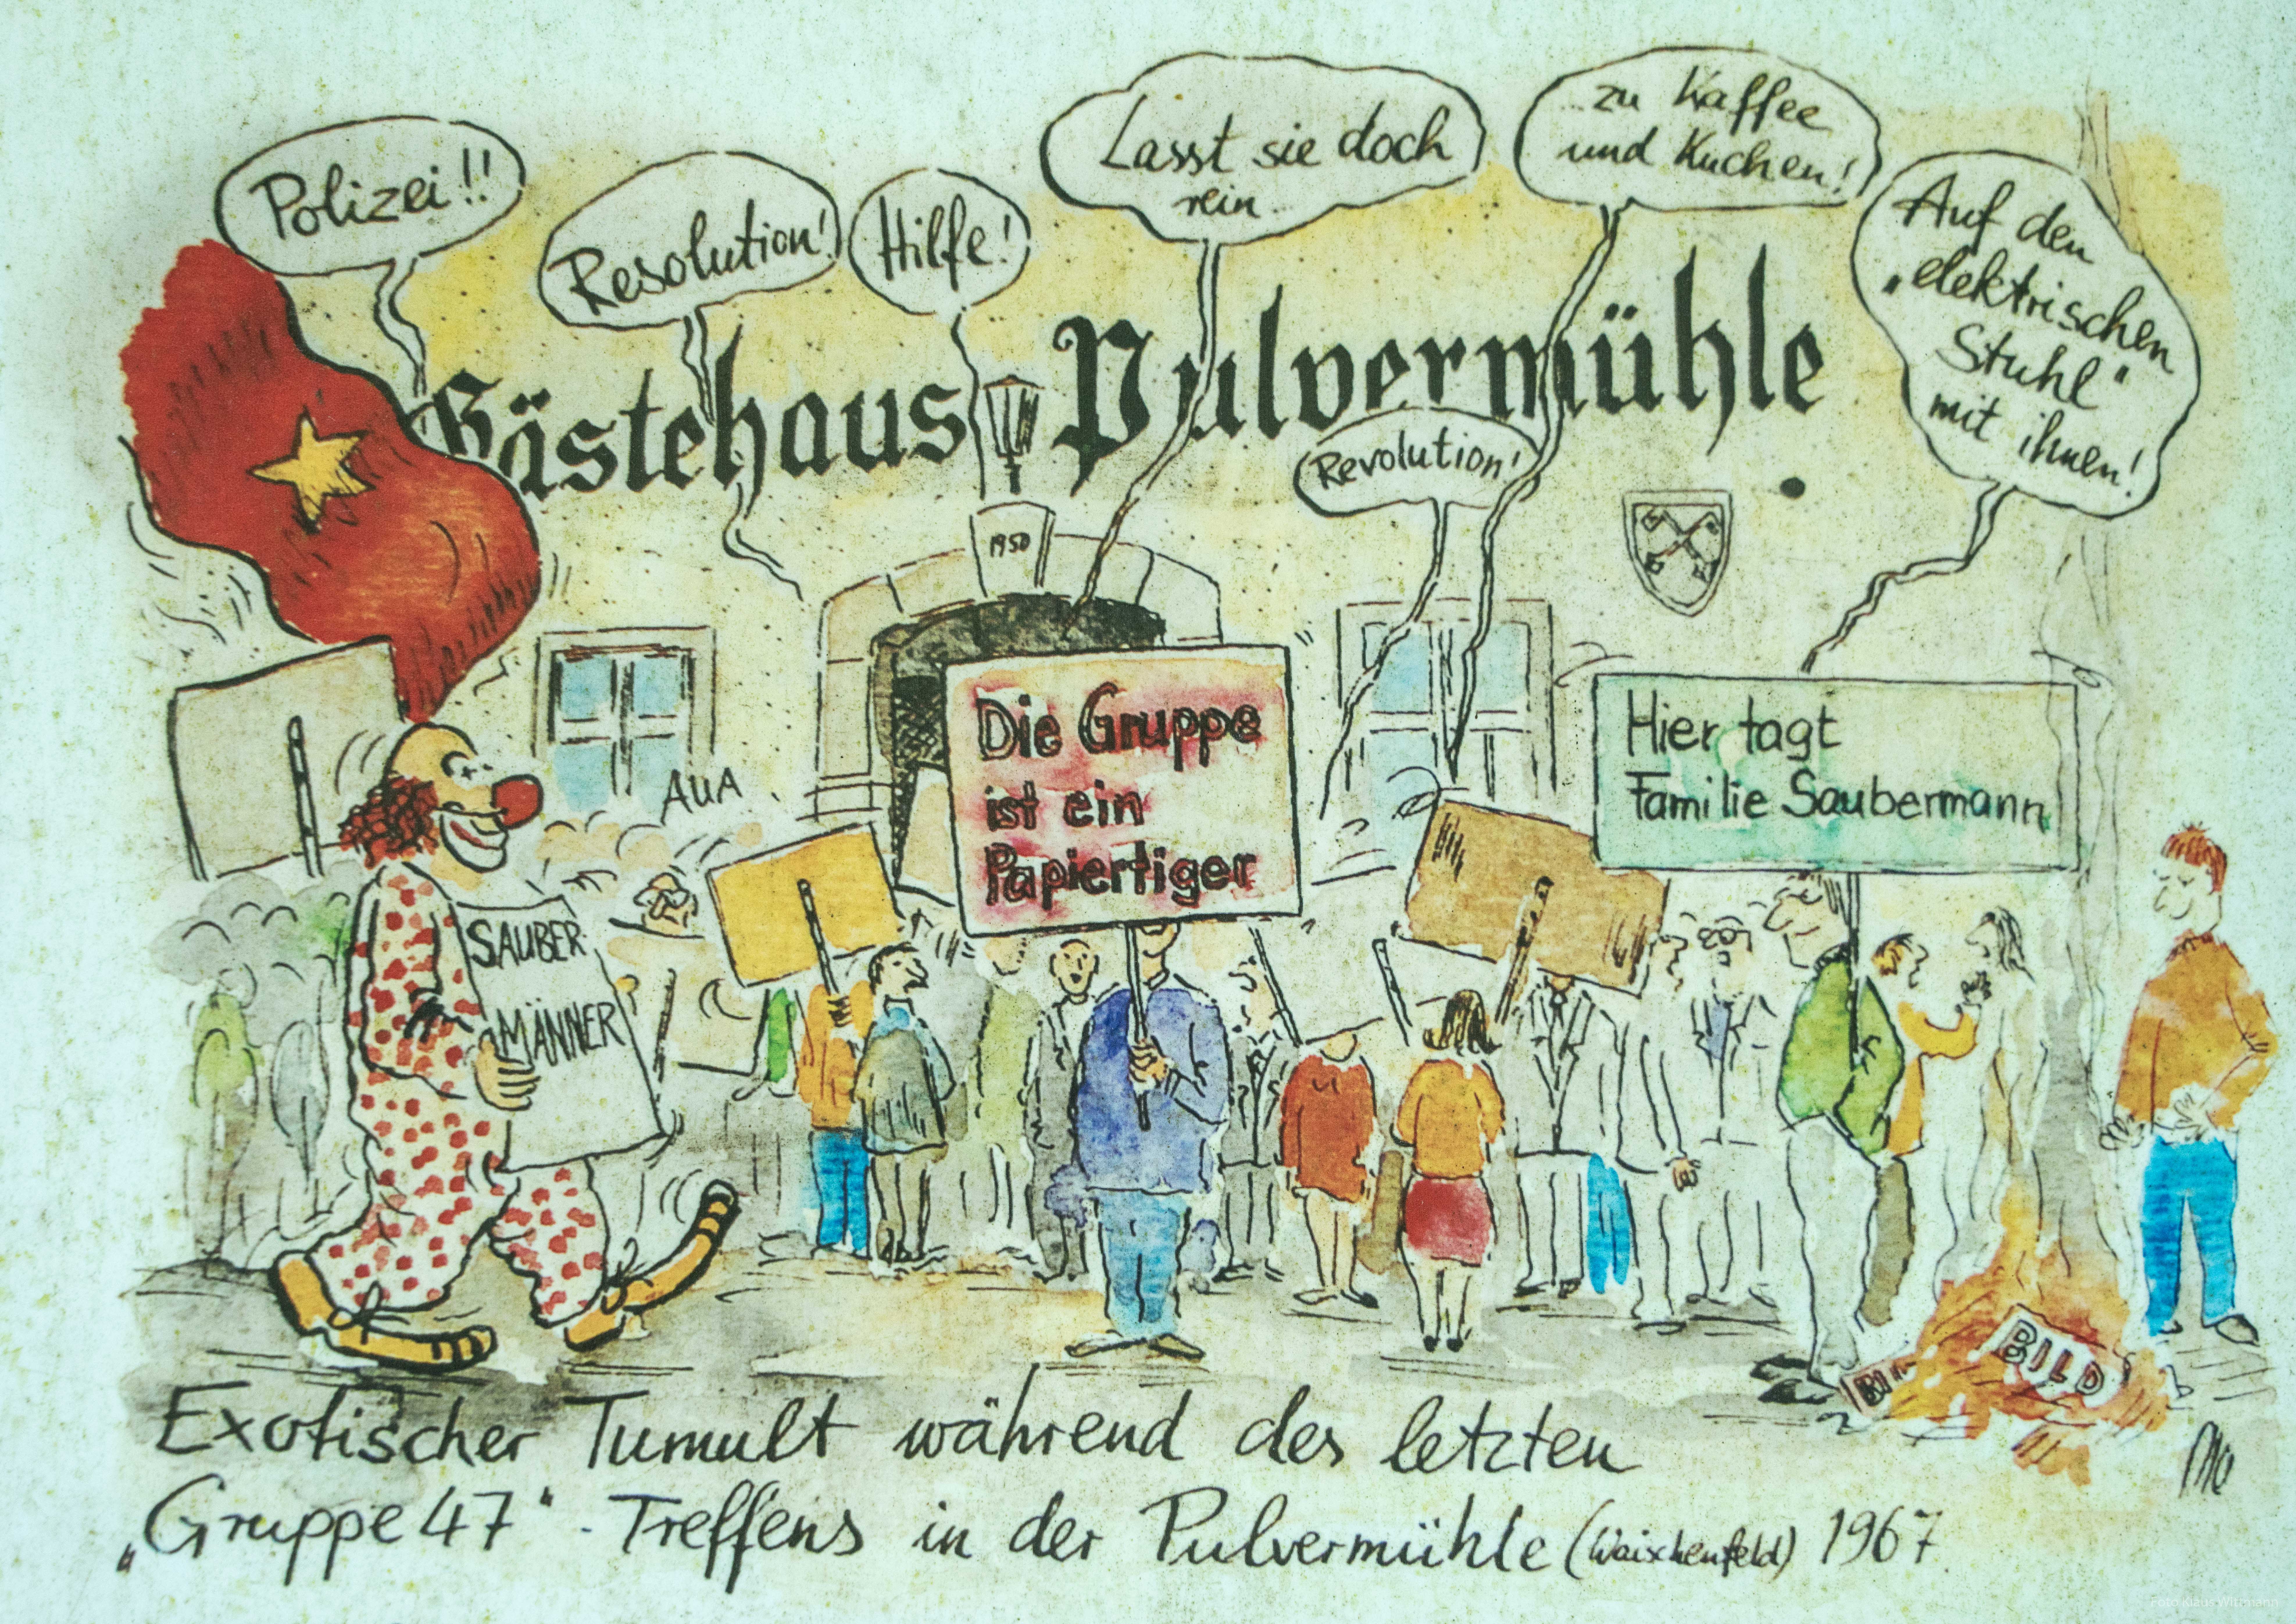 Polizei!!
Resolution!
Hilfe!
Lasst sie doch
rein...
...zu Kaffee
und Kuchen!
Auf den
„elektrischen
Stuhl"
mit ihnen!
Gästehaus Pulvermühle
Revolution!
1950
Die Gruppe
ist ein
Papiertiger
Hier tagt
Familie Saubermann
AUA
SAUBER
MÄNNER
BILD
Exotischer Tumult während des letzten
„Gruppe 47"-Treffens in der Pulvermühle (Waischenfeld) 1967
Foto Klaus Wittmann